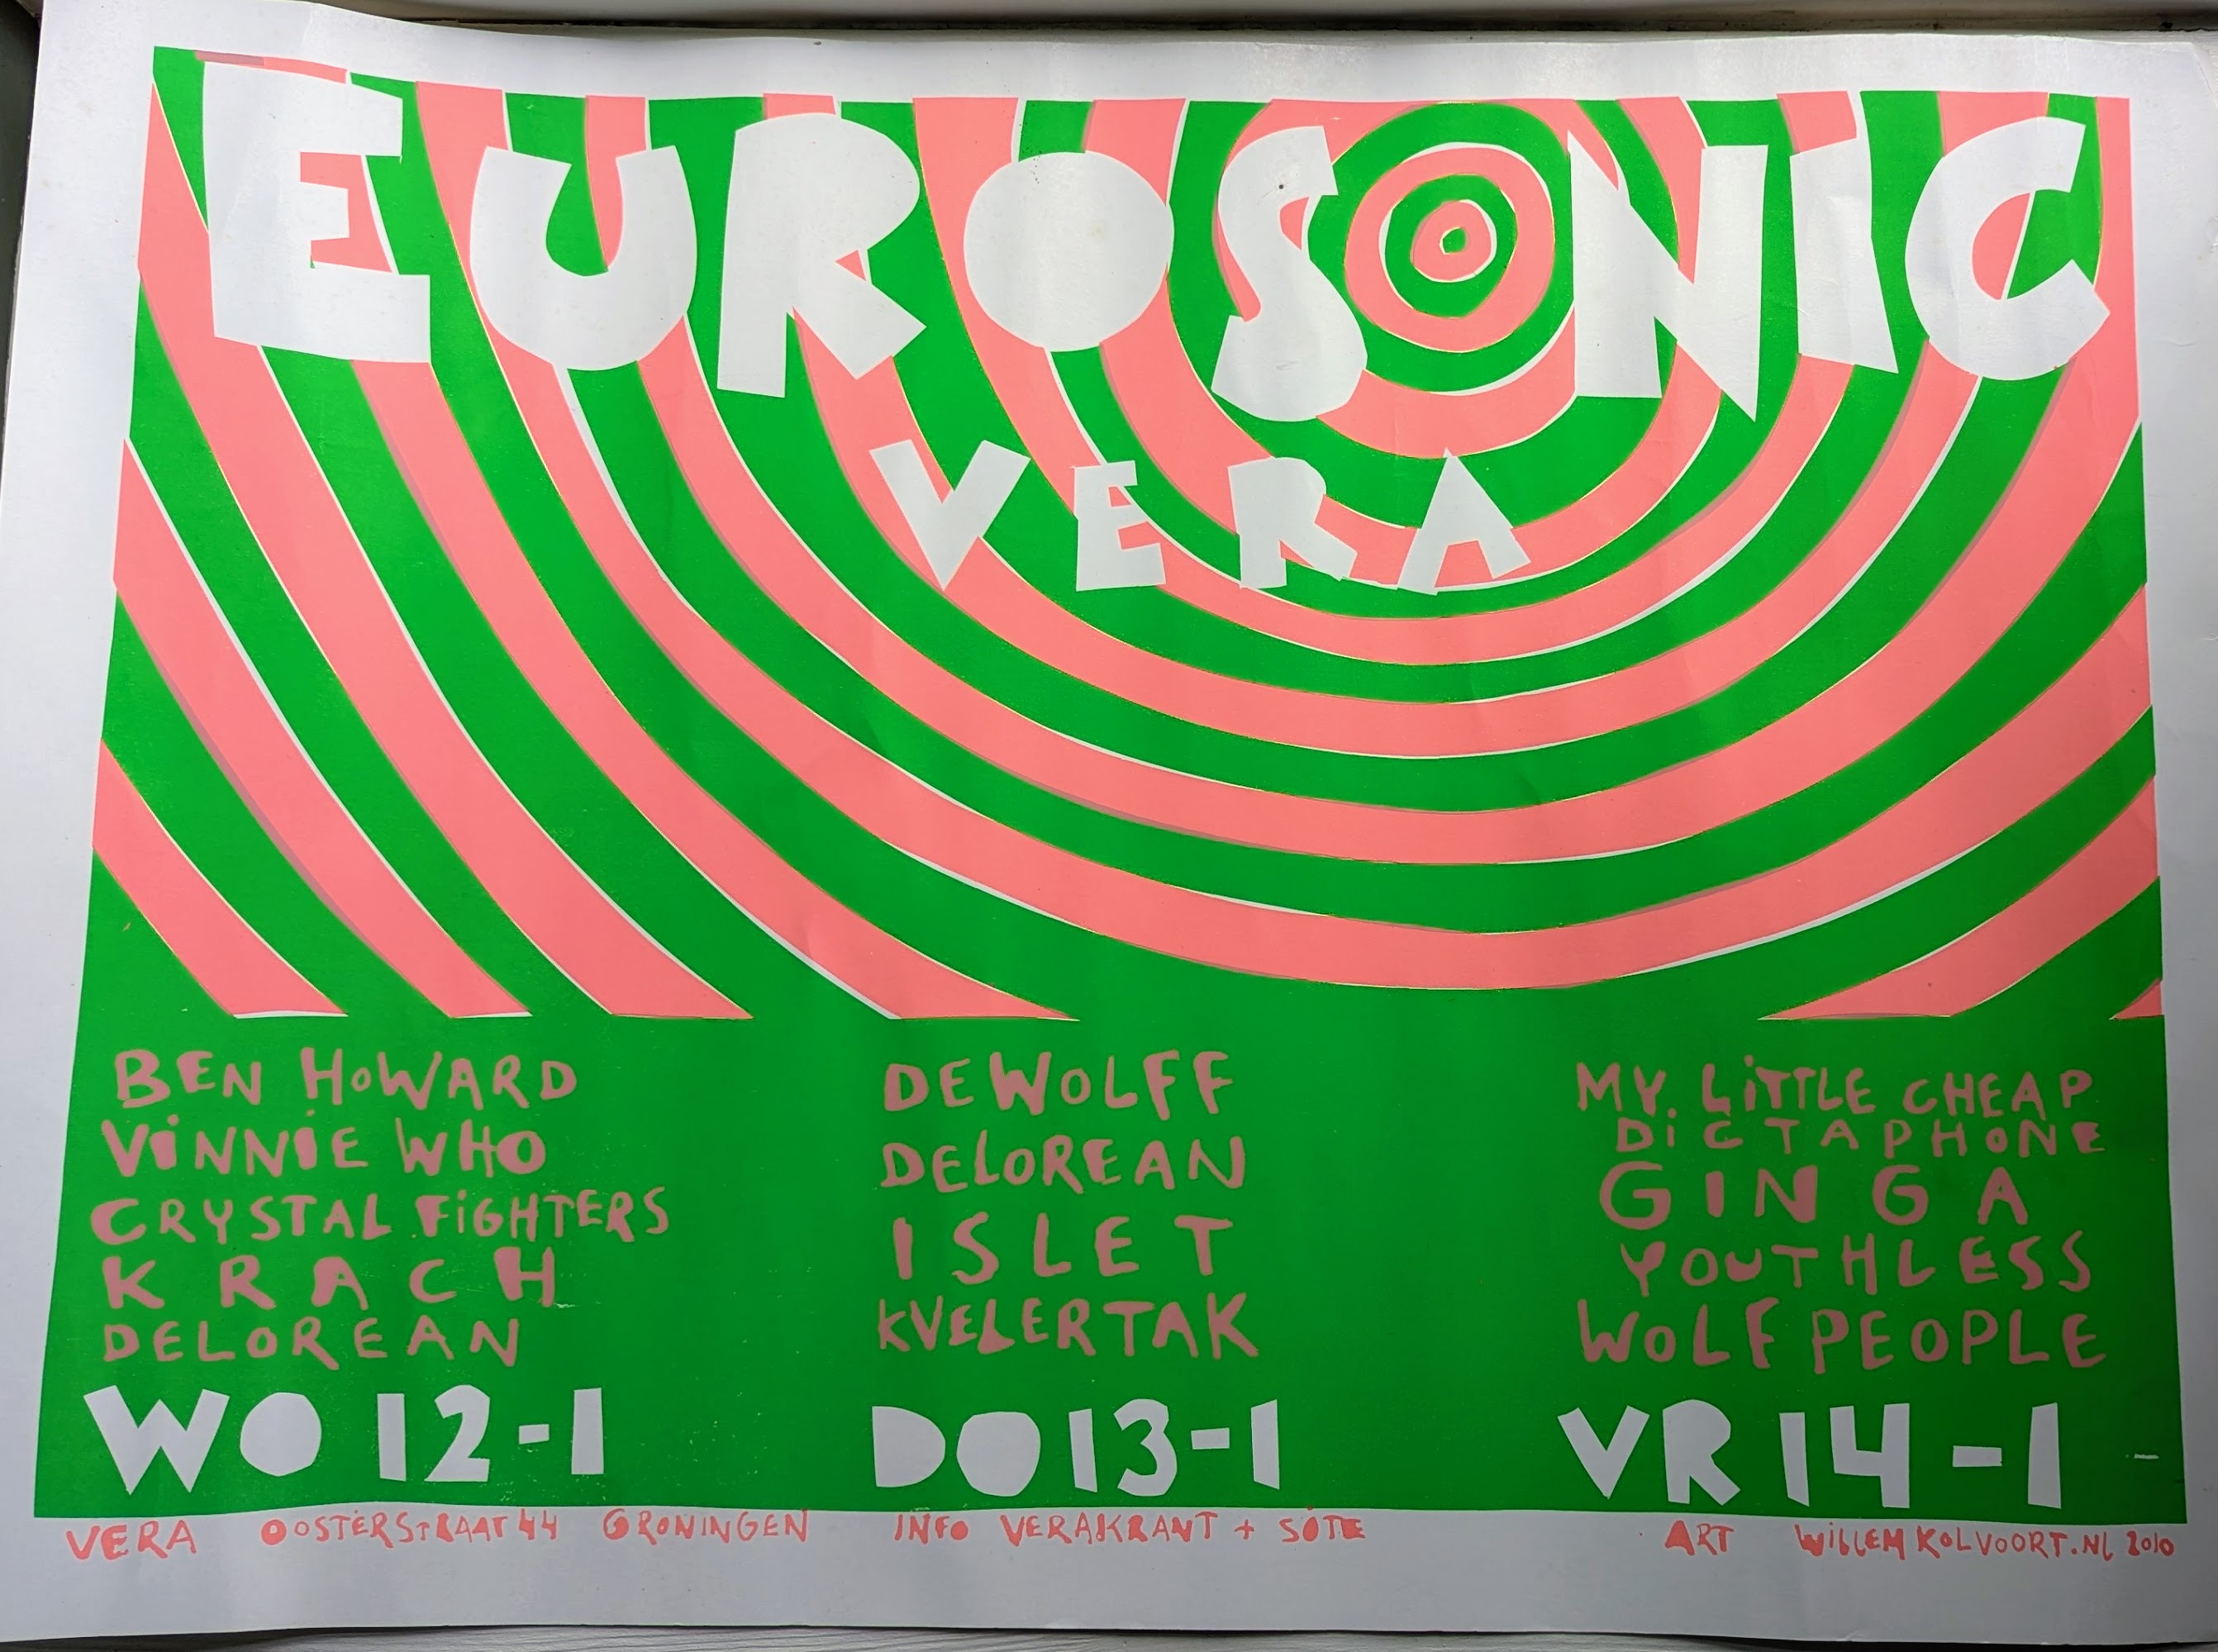 EUROSONIC
VERA
BEN HOWARD
VINNIE WHO
CRYSTAL FIGHTERS
KRACH
DELOREAN
WO 12-1
DEWOLFF
DELOREAN
ISLET
KVELERTAK
DO 13-1
MY LITTLE CHEAP
DICTAPHONE
GINGA
YOUTHLESS
WOLF PEOPLE
VR 14-1
VERA OOSTERSTRAAT 44 GRONINGEN INFO VERAKRANT + SITE ART WILLEMKOLVOORT.NL 2010